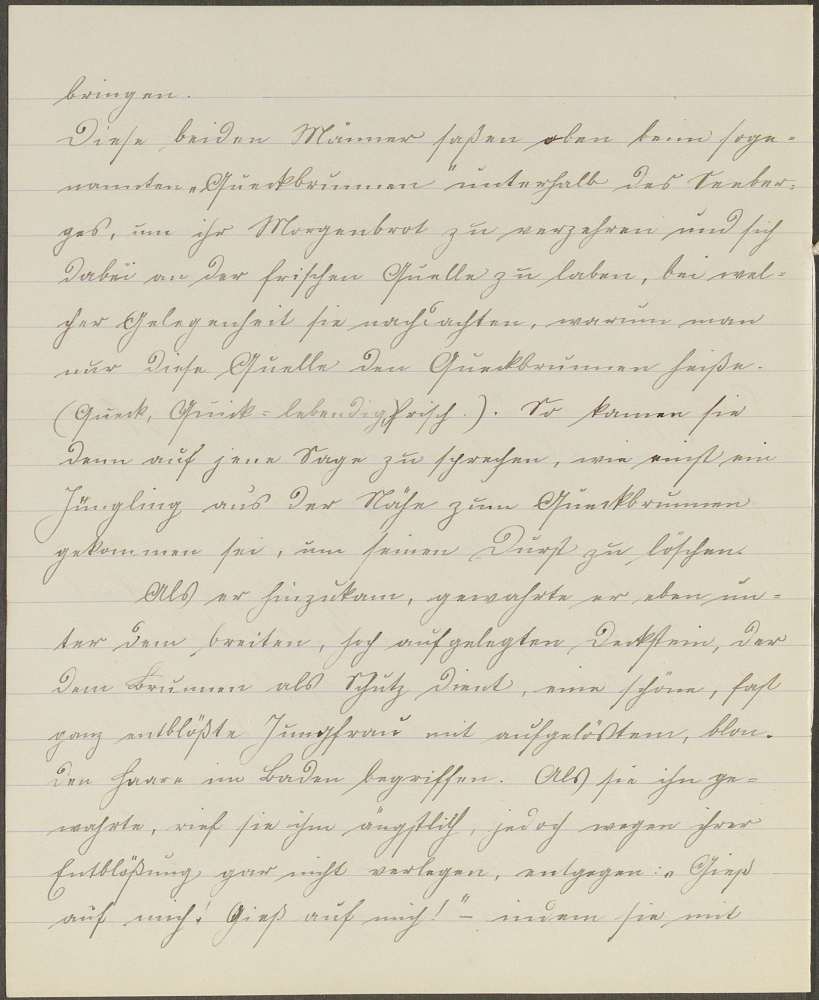 bringen.
Diese beiden Männer saßen oben beim soge-
nannten „Queckbrunnen" unterhalb des Seeber-
ges, um ihr Morgenbrot zu verzehren und sich
dabei an der frischen Quelle zu laben, bei wel-
cher Gelegenheit sie nachdachten, warum man
nur diese Quelle den Queckbrunnen heiße.
(Queck, Quick = lebendig, frisch.). So kamen sie
denn auf jene Sage zu sprechen, wie einst ein
Jüngling aus der Nähe zum Queckbrunnen
gekommen sei, um seinen Durst zu löschen.
Als er hinzukam, gewahrte er eben un-
ter dem breiten, hoch aufgelegten Deckstein, der
dem Brunnen als Schutz dient, eine schöne, fast
ganz entblößte Jungfrau mit aufgelöstem, blon-
den Haare im Baden begriffen. Als sie ihn ge-
wahrte, rief sie ihm ängstlich, jedoch wegen ihrer
Entblößung gar nicht verlegen, entgegen: „Gieß
auf mich! Gieß auf mich!" – indem sie mit